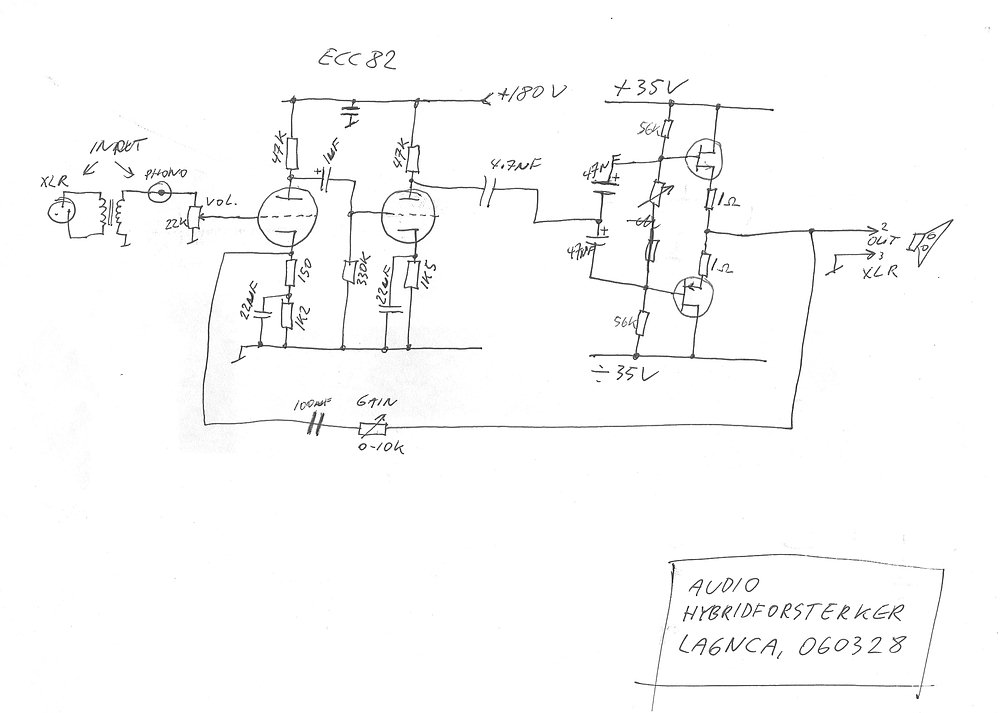 ECC 82
+180V
+35V
INPUT
XLR
PHONO
VOL.
22K
47K
1µF
47K
4.7µF
56K
47µF
47µF
1Ω
1Ω
2
OUT
3
XLR
150
1K2
22µF
330K
22µF
1K5
56K
÷35V
100µF
GAIN
0-10K
AUDIO
HYBRIDFORSTERKER
LA6NCA, 060328